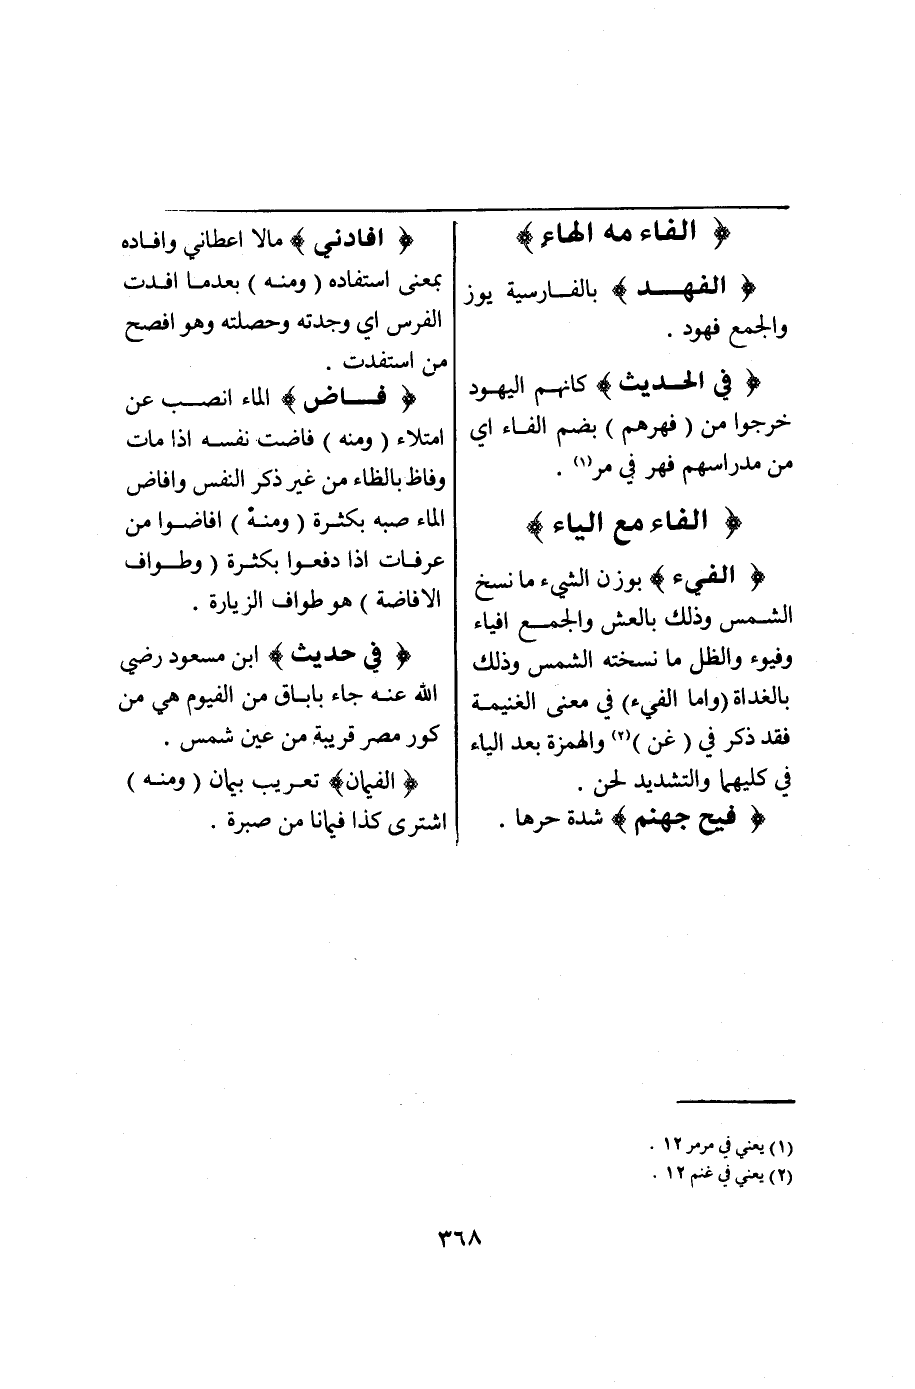 ﴿ الفاء مه الهاء ﴾
﴿ الفهـــد ﴾ بالفـارسية يوز
والجمع فهود .
﴿ في الحـديث ﴾ كانهـم اليهـود
خرجوا من ( فهرهم ) بضم الفـاء اي
من مدراسهم فهر في مر(١) .
﴿ الفاء مع الياء ﴾
﴿ الفيء ﴾ بوزن الشيء ما نسخ
الشـمس وذلك بالعش والجمـع افياء
وفيوء والظل ما نسخته الشمس وذلك
بالغداة (واما الفيء) في معنى الغنيمـة
فقد ذكر في ( غن )(٢) والهمزة بعد الياء
في كليهما والتشديد لحن .
﴿ فيح جهنم ﴾ شدة حرها .
﴿ افادني ﴾ مالا اعطاني وافـاده
بمعنى استفاده ( ومنـه ) بعدمـا افـدت
الفرس اي وجدته وحصلته وهو افصح
من استفدت .
﴿ فــاض ﴾ الماء انصـب عن
امتلاء ( ومنه ) فاضت نفسـه اذا مات
وفاظ بالظاء من غير ذكر النفس وافاض
الماء صبه بكثـرة ( ومنـه ) افاضـوا من
عرفـات اذا دفعـوا بكثـرة ( وطـواف
الافاضة ) هو طواف الزيارة .
﴿ في حديث ﴾ ابن مسعود رضي
الله عنـه جاء باباق من الفيوم هي من
كور مصر قريبة من عين شمس .
﴿ الفيمان ﴾ تعـريب بيمان ( ومنـه )
اشترى كذا فيمانا من صبرة .
(١) يعني في مرمر ١٢ .
(٢) يعني في غنم ١٢ .
٣٦٨